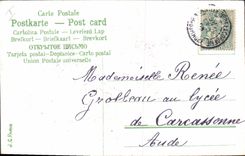 Carte Postale
Postkarte — Post card
Cartolina Postale - Levelező Lap
Brefkort - Briefkaart - Brevkort
ОТКРЫТОЕ ПИСЬМО
Tarjeta postal - Dopisnice - Carta postal
Union Postale universelle
Mademoiselle Renée
au lycée
de Carcassonne
Aude